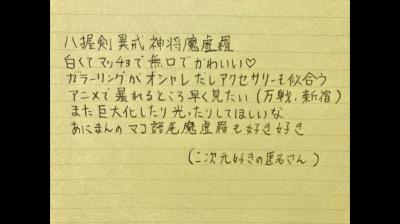 八握剣異戒神将魔虚羅
白くてマッチョで無口でかわいい♡
カラーリングがオシャレだしアクセサリーも似合う
アニメで暴れるところ早く見たい(万戦、新宿)
また巨大化したり光ったりしてほしいな
あにまんのマコ語尾魔虚羅も好き好き
(二次元好きの匿名さん)